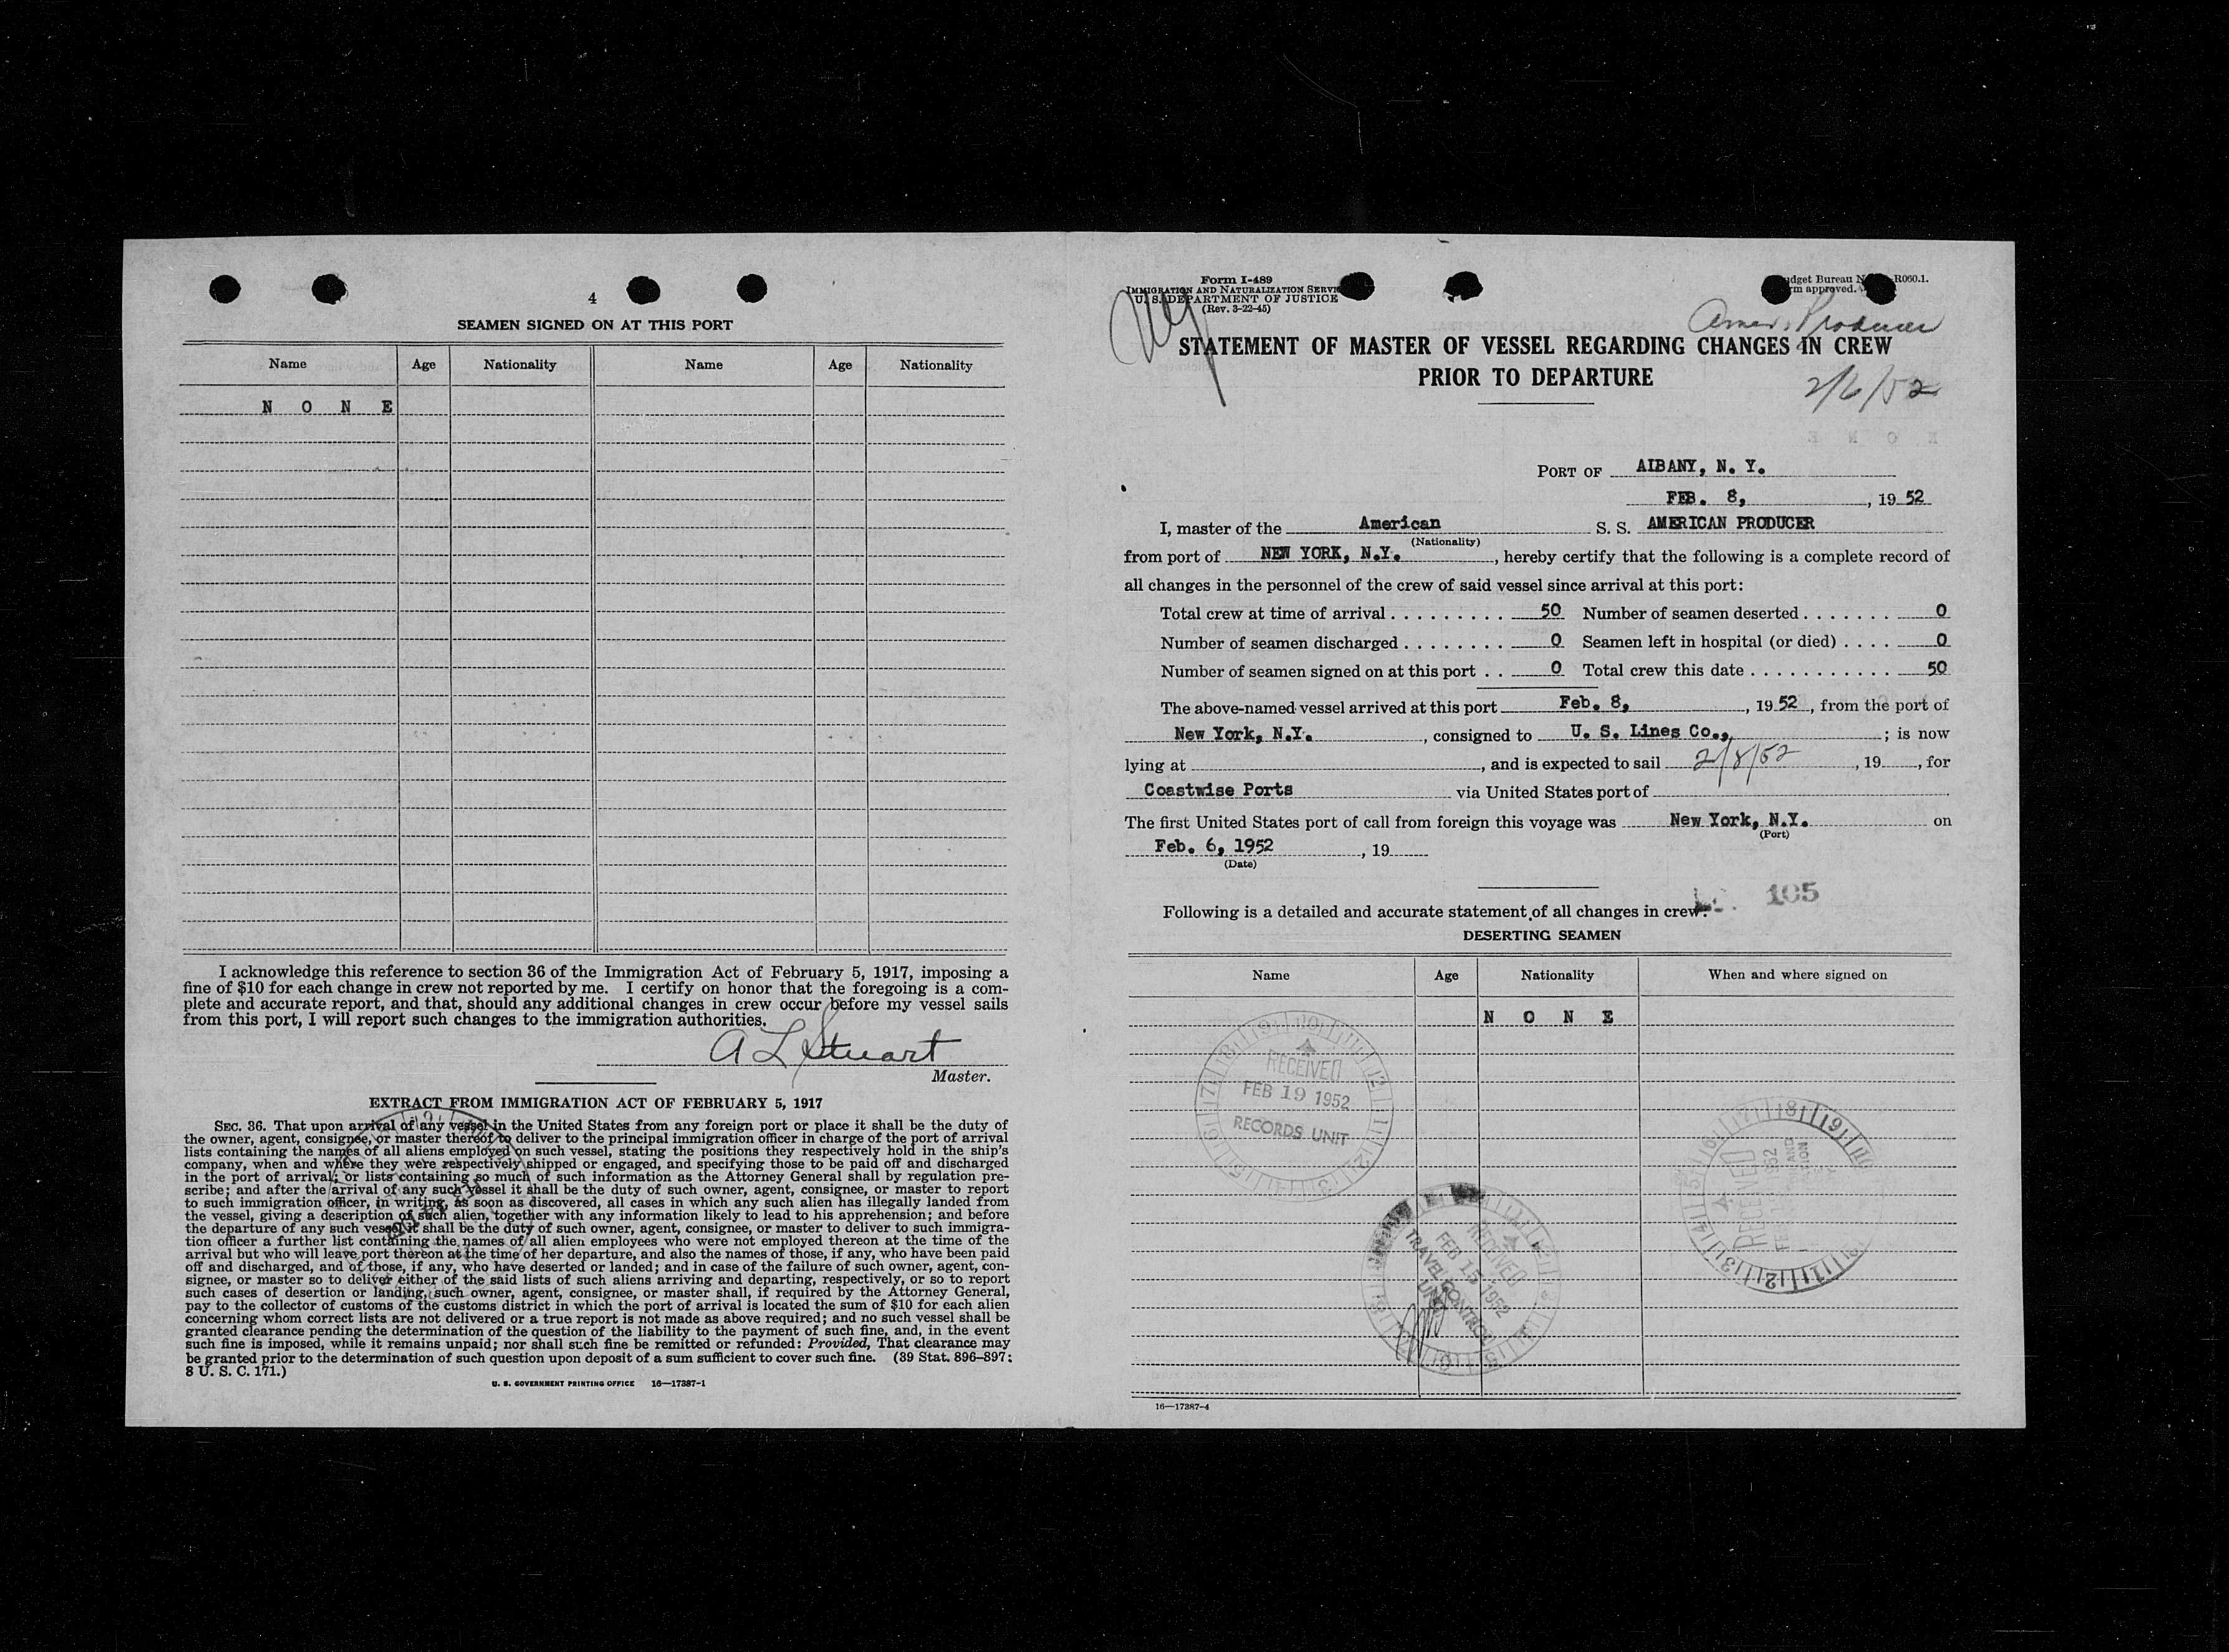 4
SEAMEN SIGNED ON AT THIS PORT
Name Age Nationality Name Age Nationality
N O N E
I acknowledge this reference to section 36 of the Immigration Act of February 5, 1917, imposing a
fine of $10 for each change in crew not reported by me. I certify on honor that the foregoing is a com-
plete and accurate report, and that, should any additional changes in crew occur before my vessel sails
from this port, I will report such changes to the immigration authorities.
A L Stuart
Master.
EXTRACT FROM IMMIGRATION ACT OF FEBRUARY 5, 1917
SEC. 36. That upon arrival of any vessel in the United States from any foreign port or place it shall be the duty of
the owner, agent, consignee, or master thereof to deliver to the principal immigration officer in charge of the port of arrival
lists containing the names of all aliens employed on such vessel, stating the positions they respectively hold in the ship's
company, when and where they were respectively shipped or engaged, and specifying those to be paid off and discharged
in the port of arrival; or lists containing so much of such information as the Attorney General shall by regulation pre-
scribe; and after the arrival of any such vessel it shall be the duty of such owner, agent, consignee, or master to report
to such immigration officer, in writing, as soon as discovered, all cases in which any such alien has illegally landed from
the vessel, giving a description of such alien, together with any information likely to lead to his apprehension; and before
the departure of any such vessel it shall be the duty of such owner, agent, consignee, or master to deliver to such immigra-
tion officer a further list containing the names of all alien employees who were not employed thereon at the time of the
arrival but who will leave port thereon at the time of her departure, and also the names of those, if any, who have been paid
off and discharged, and of those, if any, who have deserted or landed; and in case of the failure of such owner, agent, con-
signee, or master so to deliver either of the said lists of such aliens arriving and departing, respectively, or so to report
such cases of desertion or landing, such owner, agent, consignee, or master shall, if required by the Attorney General,
pay to the collector of customs of the customs district in which the port of arrival is located the sum of $10 for each alien
concerning whom correct lists are not delivered or a true report is not made as above required; and no such vessel shall be
granted clearance pending the determination of the question of the liability to the payment of such fine, and, in the event
such fine is imposed, while it remains unpaid; nor shall such fine be remitted or refunded: Provided, That clearance may
be granted prior to the determination of such question upon deposit of a sum sufficient to cover such fine. (39 Stat. 896–897;
8 U. S. C. 171.)
U. S. GOVERNMENT PRINTING OFFICE 16—17387-1
Form I-489
IMMIGRATION AND NATURALIZATION
U. S. DEPARTMENT OF JUSTICE
(Rev. 3-22-45)
Bureau R060.1.
approved.
Amer. Producer
STATEMENT OF MASTER OF VESSEL REGARDING CHANGES IN CREW
PRIOR TO DEPARTURE
2/6/52
PORT OF AIBANY, N. Y.
FEB. 8, , 19 52
I, master of the American S. S. AMERICAN PRODUCER
(Nationality)
from port of NEW YORK, N.Y. , hereby certify that the following is a complete record of
all changes in the personnel of the crew of said vessel since arrival at this port:
Total crew at time of arrival . . . . . . . . . 50 Number of seamen deserted . . . . . . . 0
Number of seamen discharged . . . . . . . . 0 Seamen left in hospital (or died) . . . . 0
Number of seamen signed on at this port . . 0 Total crew this date . . . . . . . . . . . 50
The above-named vessel arrived at this port Feb. 8, , 19 52 , from the port of
New York, N.Y. , consigned to U. S. Lines Co., ; is now
lying at , and is expected to sail 2/8/52 , 19 , for
Coastwise Ports via United States port of
The first United States port of call from foreign this voyage was New York, N.Y. on
(Port)
Feb. 6, 1952 , 19
(Date)
105
Following is a detailed and accurate statement of all changes in crew:
DESERTING SEAMEN
Name Age Nationality When and where signed on
N O N E
RECEIVED
FEB 19 1952
RECORDS UNIT
RECEIVED
FEB 15 1952
TRAVEL CONTROL
UNIT
RECEIVED
16—17387-4